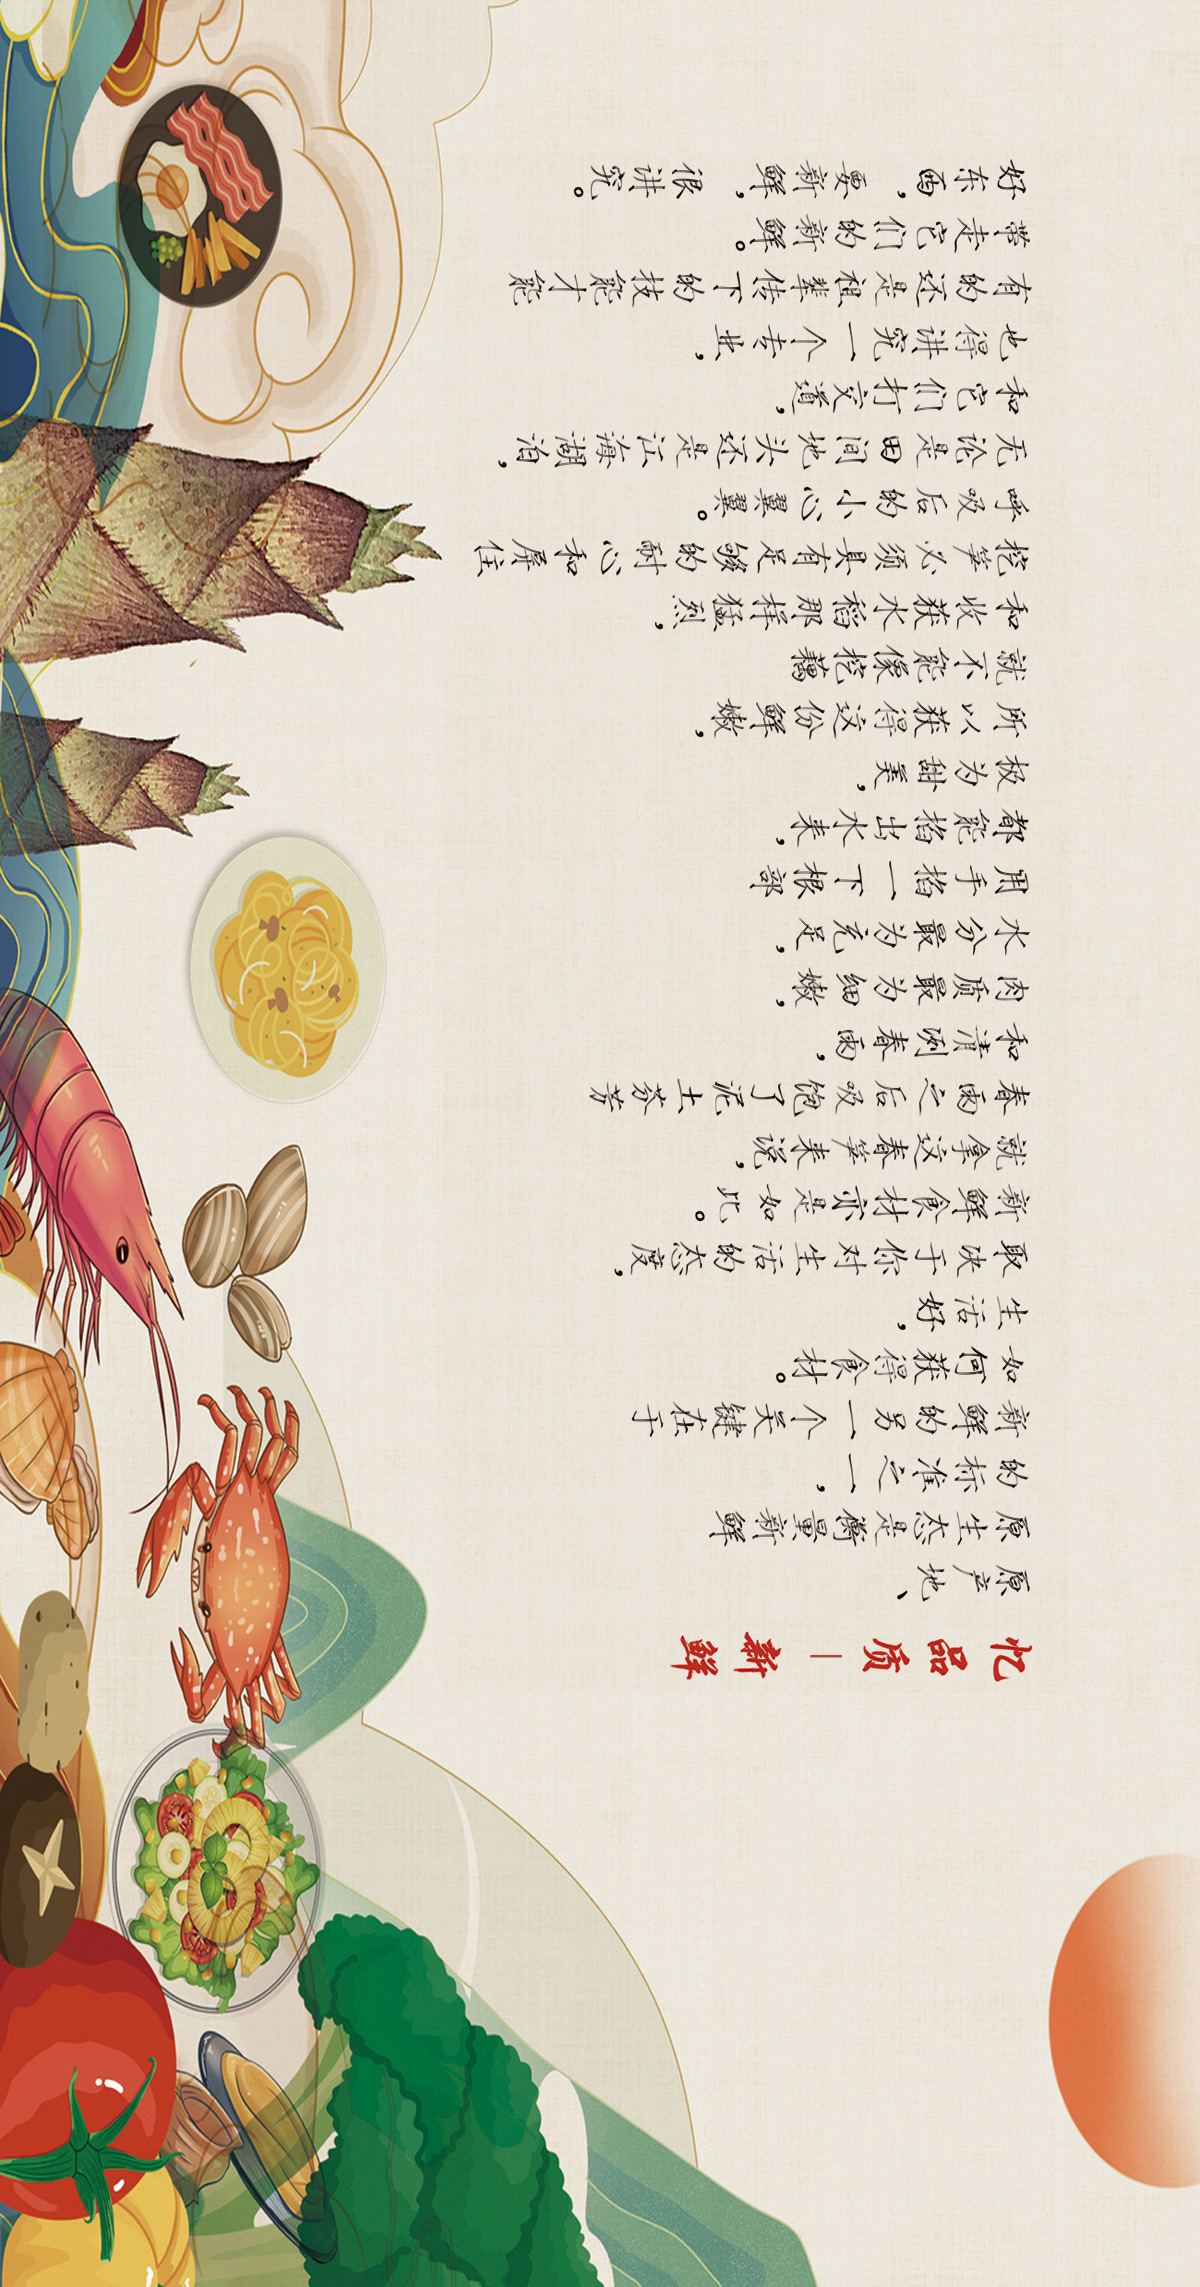 忆品质—新鲜
原产地、
原生态是衡量新鲜
的标准之一，
新鲜的另一个关键在于
如何获得食材。
生活好，
取决于你对生活的态度，
新鲜食材亦是如此。
就拿这春笋来说，
春雨之后吸饱了泥土芬芳
和清冽春雨，
肉质最为细嫩，
水分最为充足，
用手掐一下根部
都能掐出水来，
极为甜美，
所以获得这份鲜嫩，
就不能像挖藕
和收获水稻那样猛烈，
挖笋必须具有足够的耐心和屏住
呼吸后的小心翼翼。
无论是田间地头还是江海湖泊，
和它们打交道，
也得讲究一个专业，
有的还是祖辈传下的技能才能
带走它们的新鲜。
好东西，要新鲜，很讲究。